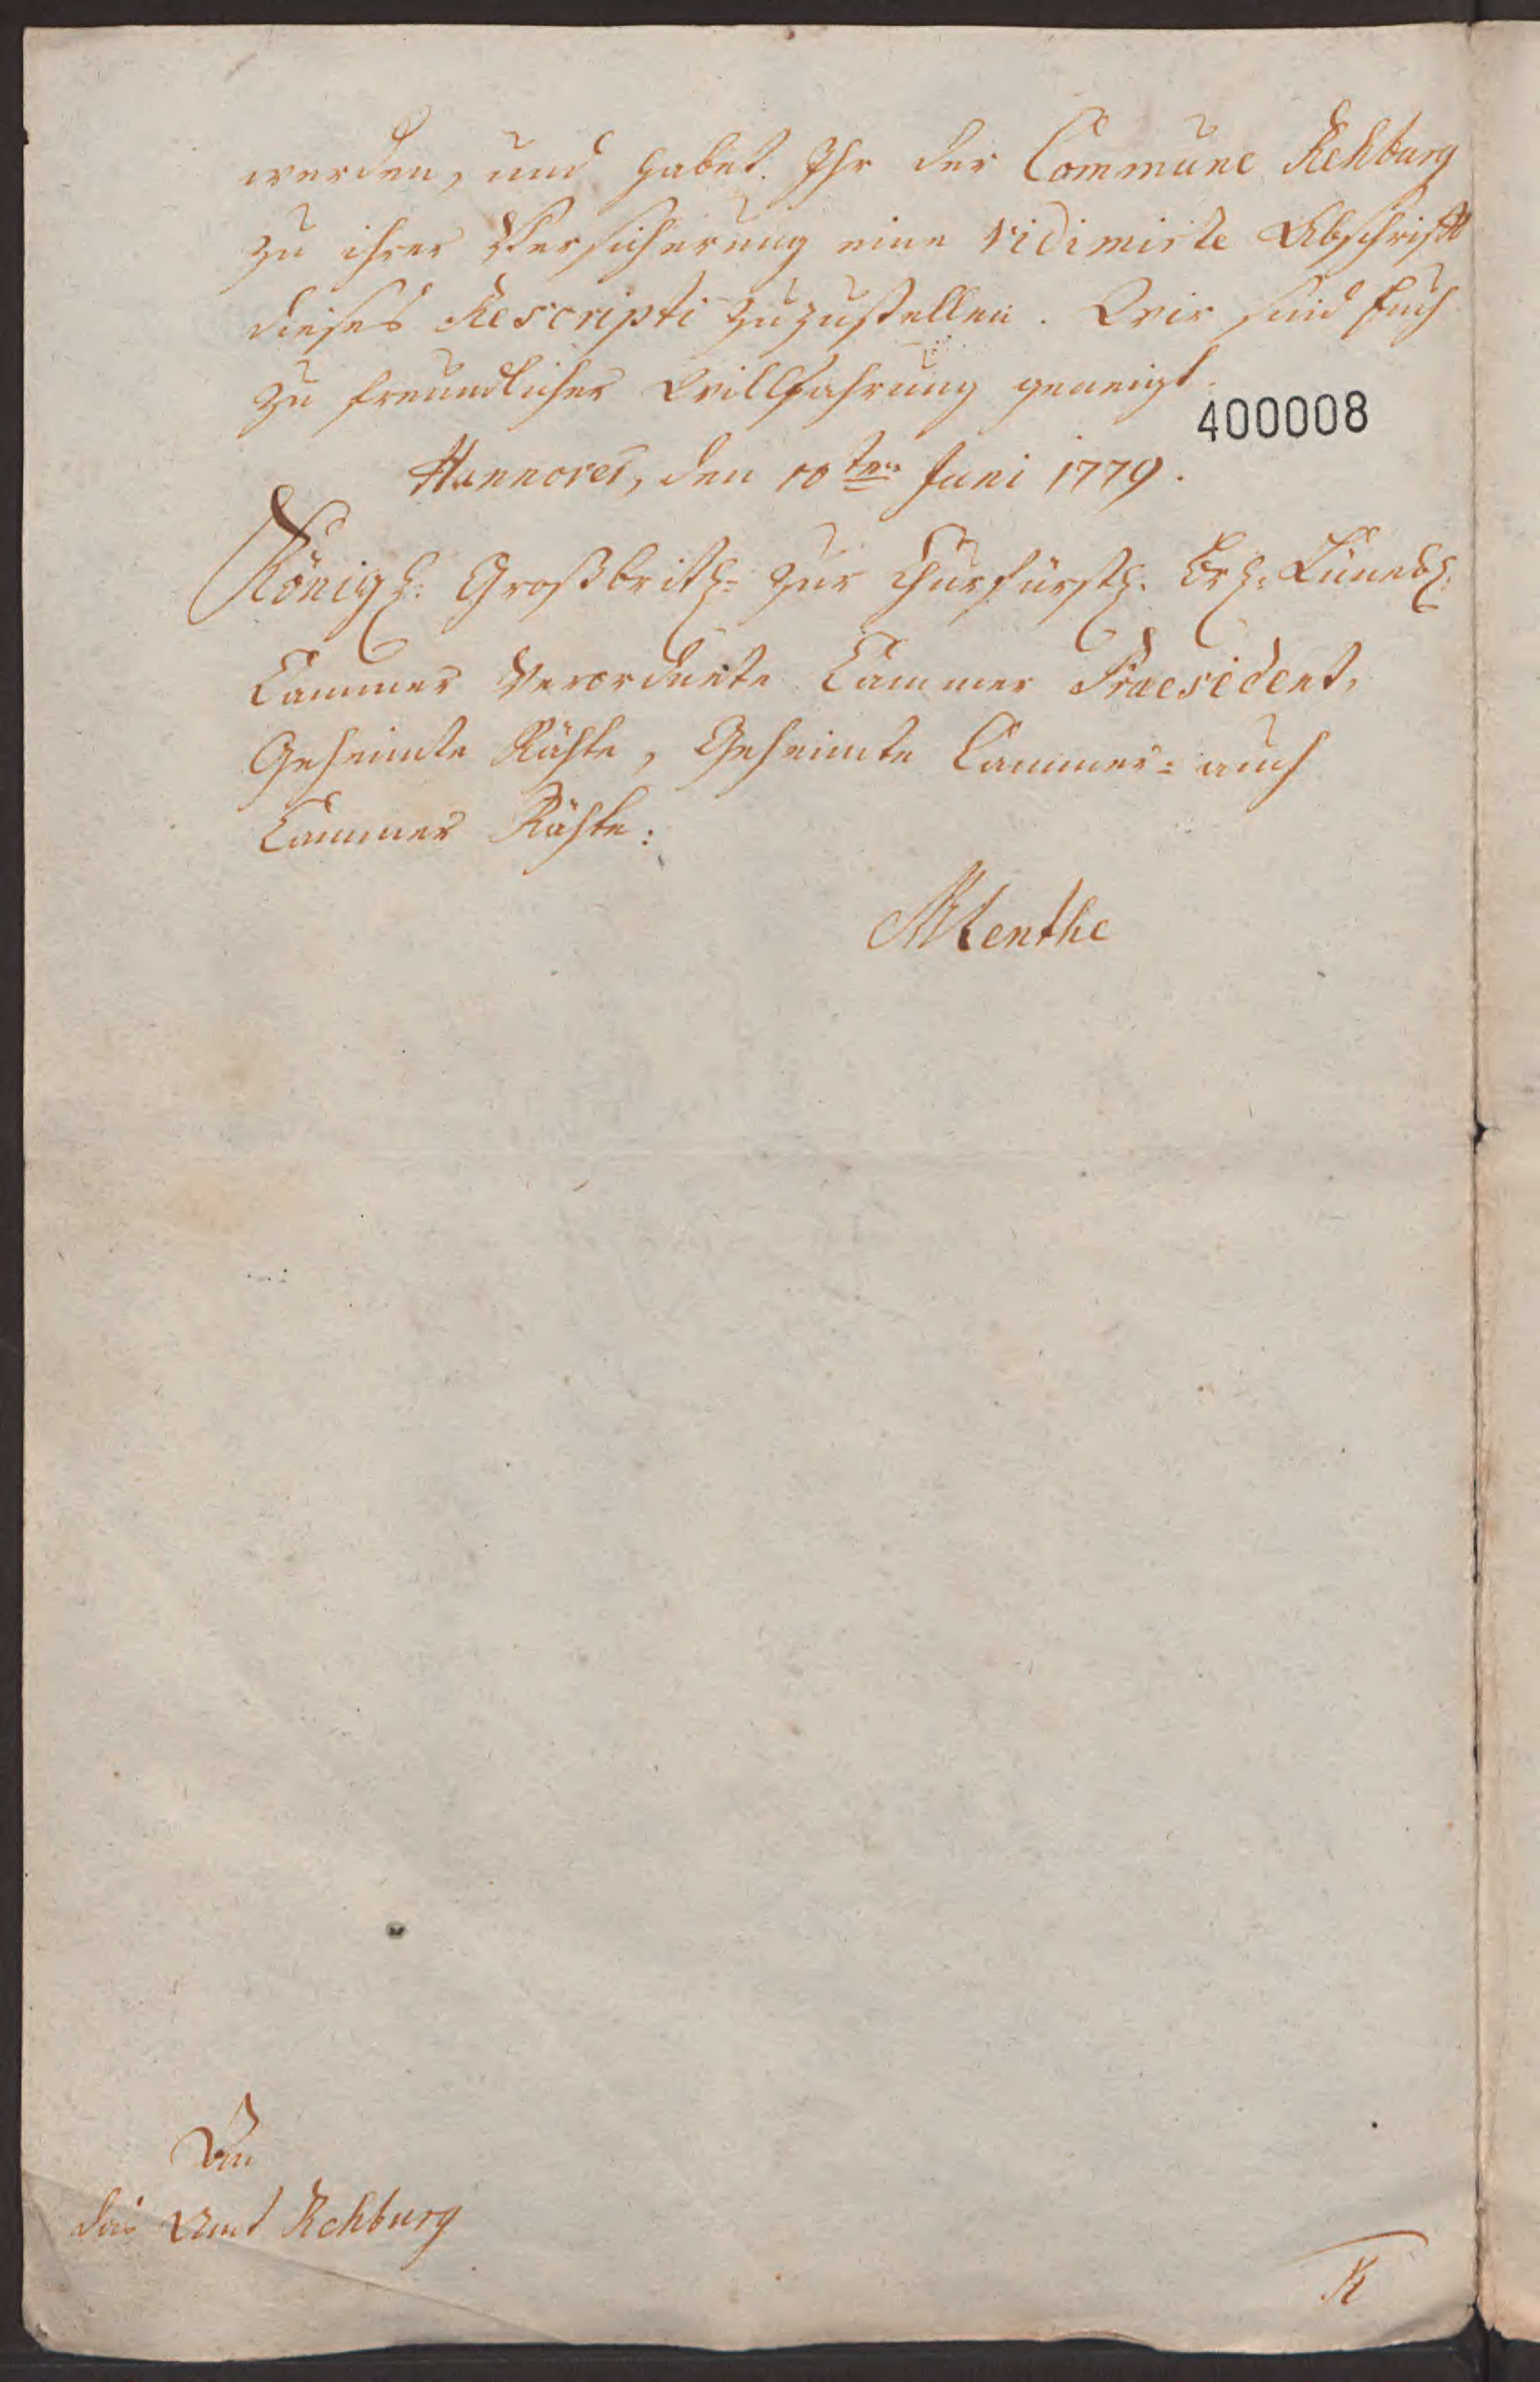 werden, und habet Ihr der Commune Rehburg
zu ihrer Versicherung eine vidimirte Abschrifft
dieses Rescripti zuzustellen. Wir sind Euch
zu freundlicher Willfahrung geneigt.
400008
Hannover, den 10ten Juni 1779.
Königl. Großbrit. zur Churfürstl. Br. Lüneb.
Cammer Verordnete Cammer Praesident,
Geheimte Räthe, Geheimte Cammer= auch
Cammer Räthe:
An
das Amt Rehburg
R